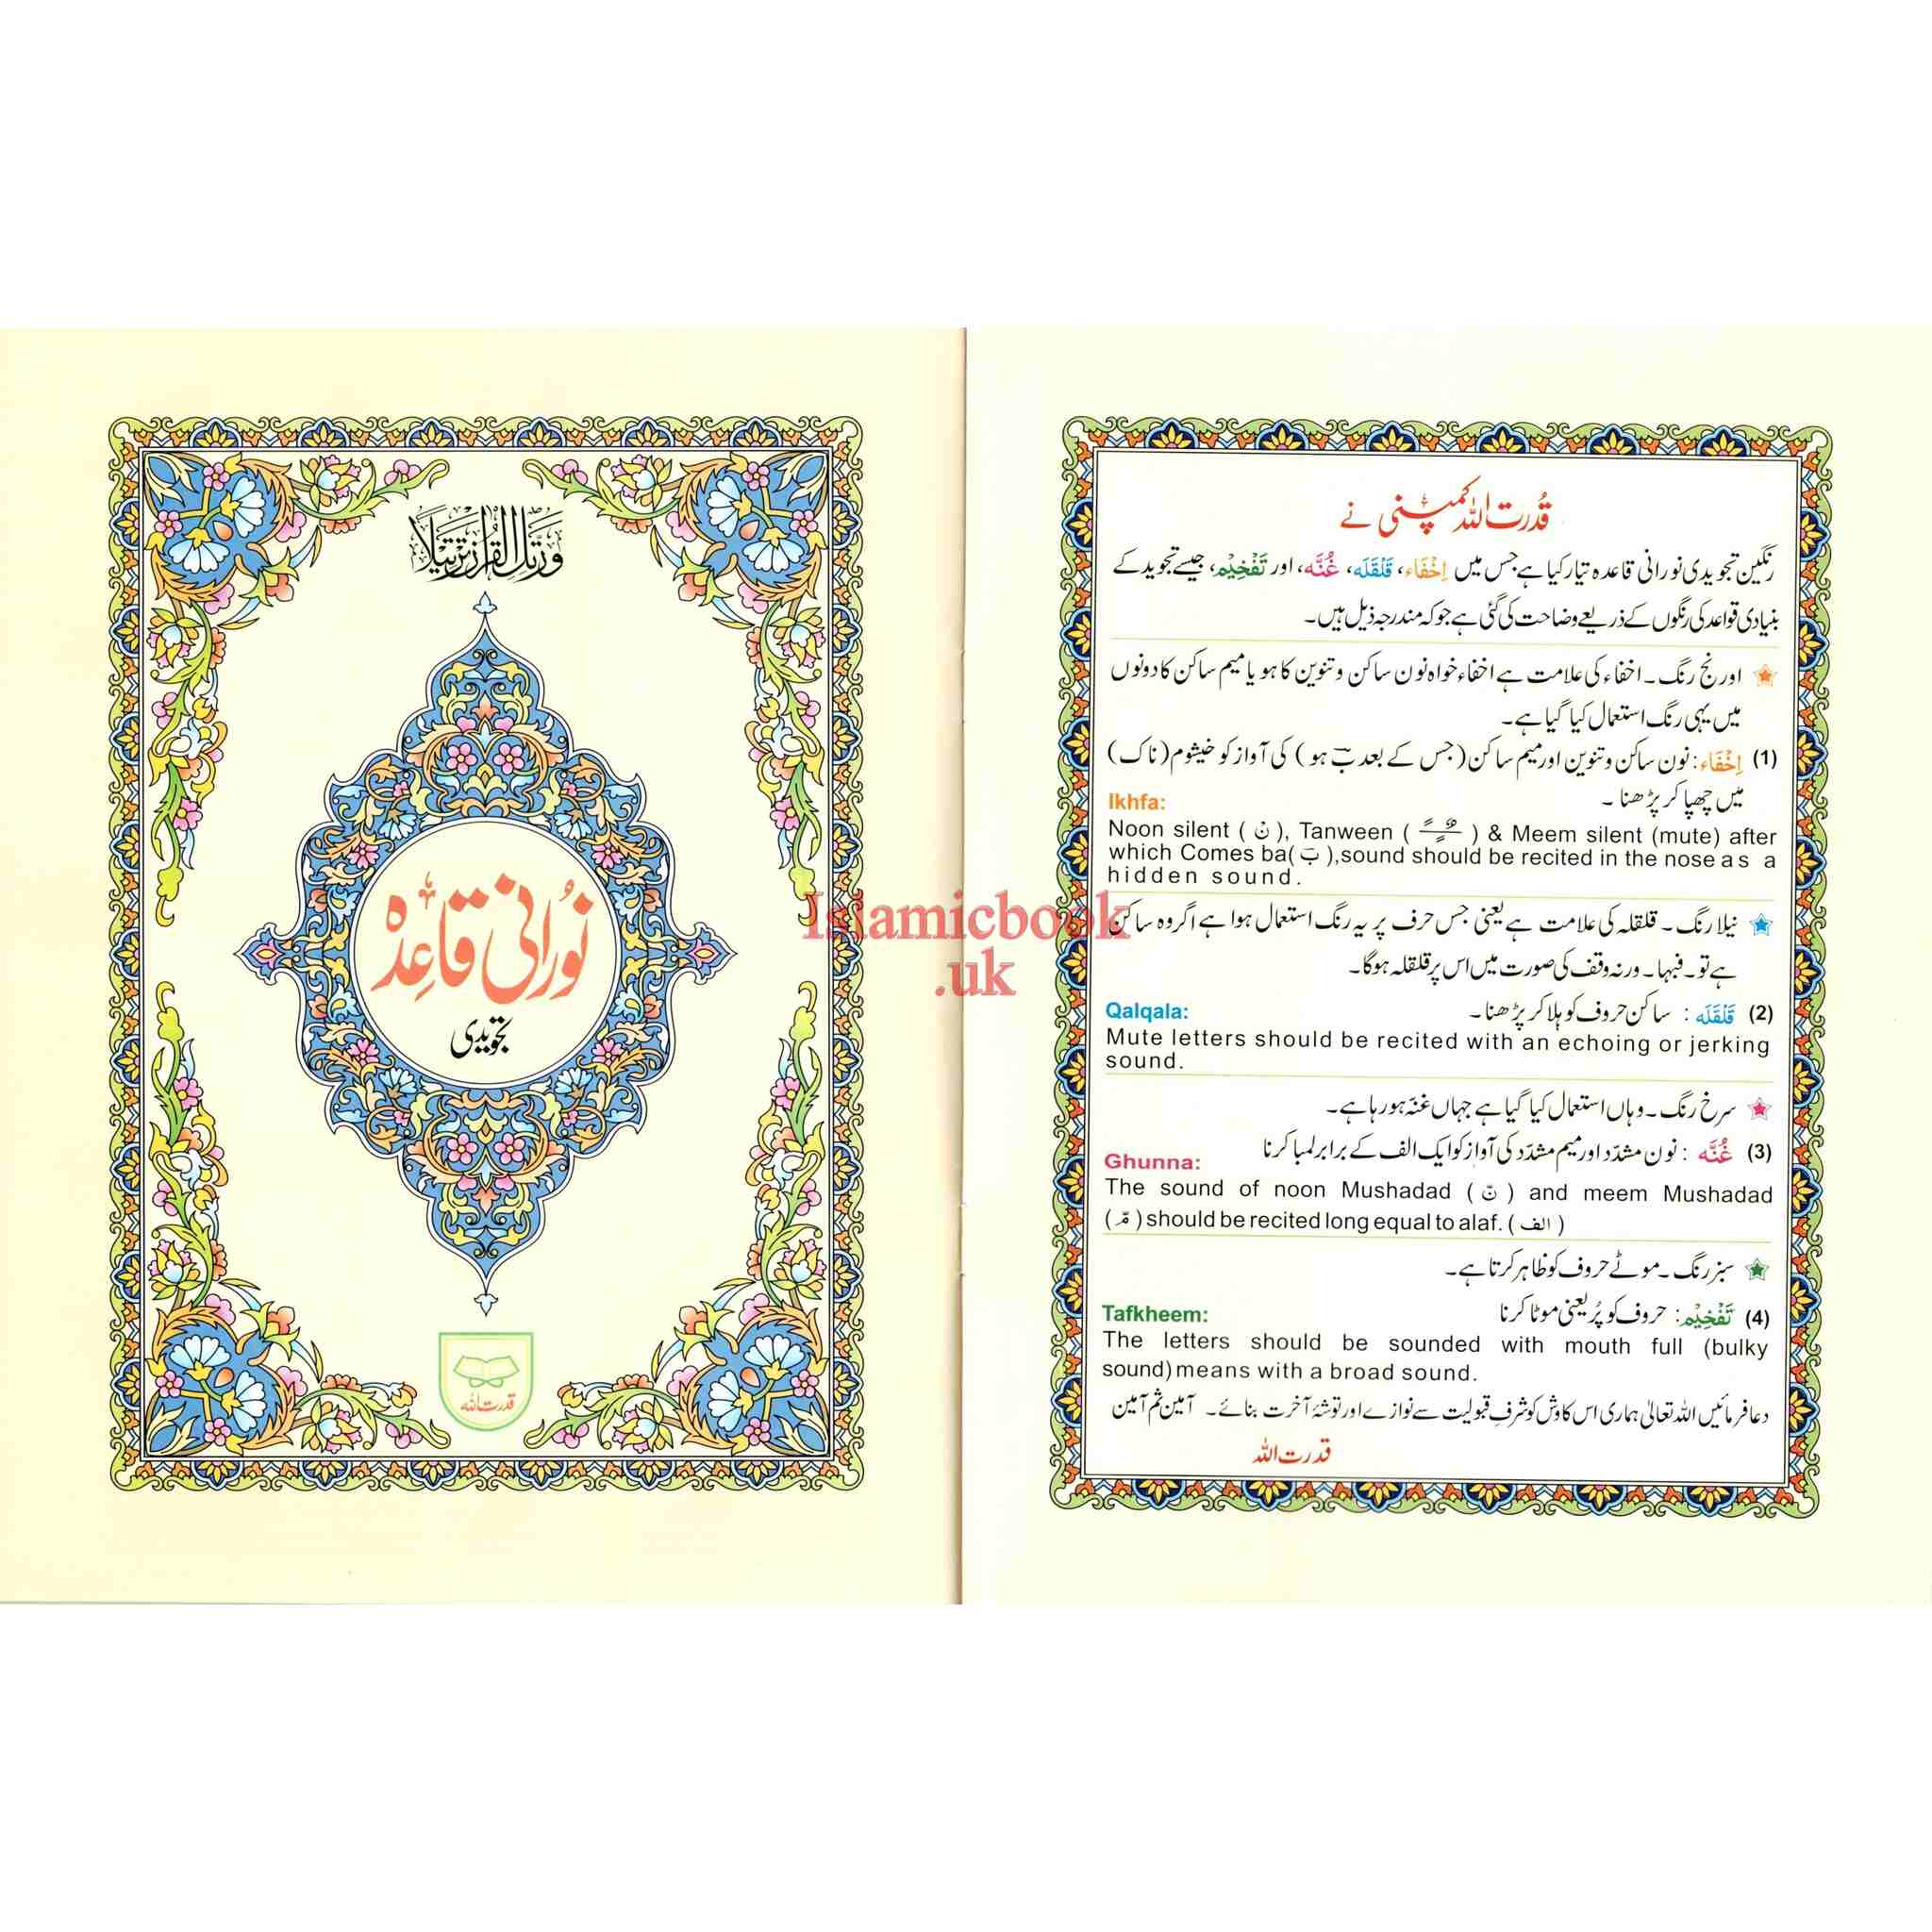 ورتل القران ترتیلا
نُورانی قاعِدہ
تجویدی
قدرت اللہ
Islamicbook
.uk
قُدرت اللہ کمپنی نے
رنگین تجویدی نورانی قاعدہ تیار کیا ہے جس میں اِخْفَاء، قَلْقَلَه، غُنَّه، اور تَفْخِیْم، جیسے تجوید کے
بنیادی قواعد کی رنگوں کے ذریعے وضاحت کی گئی ہے جو کہ مندرجہ ذیل ہیں۔
اورنج رنگ۔ اخفاء کی علامت ہے اخفاء خواہ نون ساکن و تنوین کا ہو یا میم ساکن کا دونوں
میں یہی رنگ استعمال کیا گیا ہے۔
(1) اِخْفَاء: نون ساکن و تنوین اور میم ساکن (جس کے بعد بَ ہو) کی آواز کو خیشوم (ناک)
میں چھپا کر پڑھنا۔
Ikhfa:
Noon silent ( نْ ), Tanween ( ـًـٍـٌ ) & Meem silent (mute) after
which Comes ba( بَ ),sound should be recited in the nose as a
hidden sound.
نیلا رنگ۔ قلقلہ کی علامت ہے یعنی جس حرف پر یہ رنگ استعمال ہوا ہے اگر وہ ساکن
ہے تو۔ فبہا۔ ورنہ وقف کی صورت میں اس پر قلقلہ ہوگا۔
(2) قَلْقَلَه : ساکن حروف کو ہلا کر پڑھنا۔
Qalqala:
Mute letters should be recited with an echoing or jerking
sound.
سرخ رنگ۔ وہاں استعمال کیا گیا ہے جہاں غنّہ ہو رہا ہے۔
(3) غُنَّه : نون مشدّد اور میم مشدّد کی آواز کو ایک الف کے برابر لمبا کرنا
Ghunna:
The sound of noon Mushadad ( نّ ) and meem Mushadad
( مّ ) should be recited long equal to alaf. ( الف )
سبز رنگ۔ موٹے حروف کو ظاہر کرتا ہے۔
(4) تَفْخِیْم: حروف کو پُر یعنی موٹا کرنا
Tafkheem:
The letters should be sounded with mouth full (bulky
sound) means with a broad sound.
دعا فرمائیں اللہ تعالیٰ ہماری اس کاوش کو شرفِ قبولیت سے نوازے اور توشۂ آخرت بنائے۔ آمین ثم آمین
قدرت اللہ